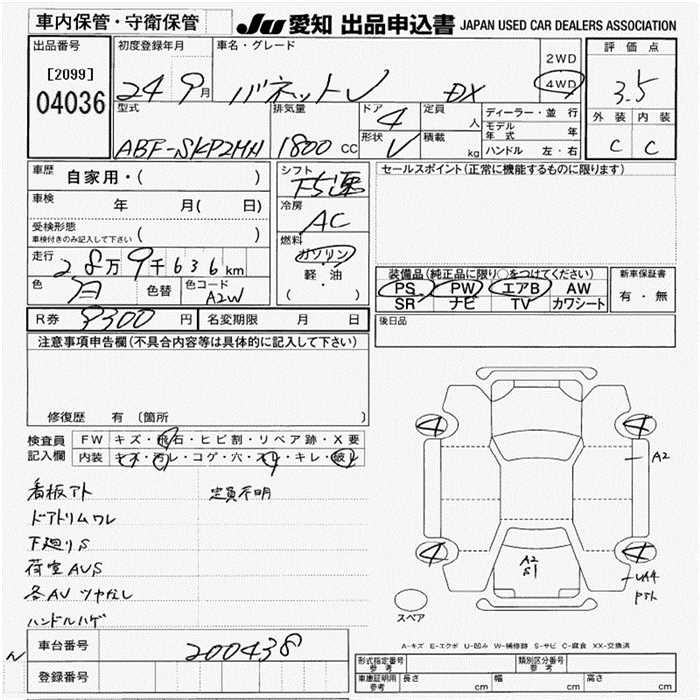 車内保管・守衛保管
JU 愛知 出品申込書 JAPAN USED CAR DEALERS ASSOCIATION
出品番号
[2099]
04036
初度登録年月
24 9月
車名・グレード
バネットV DX
2WD
4WD
評価点
3.5
外装 内装
C C
型式
ABF-SKP2MN
排気量
1800 CC
ドア
4
形状
V
定員
人
積載
kg
ディーラー・並行
モデル年式 年
ハンドル 左・右
車歴 自家用・( )
車検 年 月( 日)
受検形態
車検付きのみ記入して下さい ( )
走行 28万9千636km
色 白 色替 色コード A2W
シフト
F5速
冷房
AC
燃料
ガソリン
・
軽・油
( )
セールスポイント(正常に機能するものに限ります)
装備品(純正品に限り○をつけてください)
PS PW エアB AW
SR ナビ TV カワシート
新車保証書
有・無
R券 9300円 名変期限 月 日
後日品
注意事項申告欄(不具合内容等は具体的に記入して下さい)
修復歴 有〔箇所 〕
検査員記入欄
FW キズ・飛石・ヒビ割・リペア跡・X要
内装 キズ・汚レ・コゲ・穴・スレ・キレ・破レ
看板アト 定員不明
ドアトリムワレ
下廻りS
荷室AUS
各AU ツヤなし
ハンドルハゲ
4 4
A2
4 4
A2
S1
UA4
P51
スペア
A-キズ E-エクボ U-凹み W-補修跡 S-サビ C-腐食 XX-交換済
車台番号 200438
登録番号
型式指定番号 参考
類別区分番号 参考
車庫証明用 参考 長さ cm 幅 cm 高さ cm